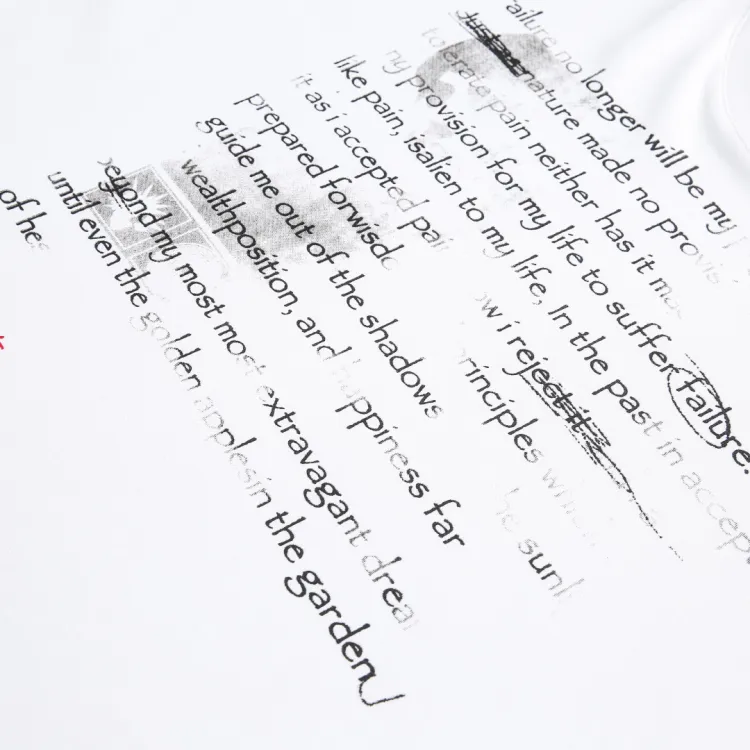 failure no longer will be my
Just as nature made no provis
tolerate pain neither has it ma
ny provision for my life to suffer failure.
like pain, isalien to my life, In the past in accep
it as i accepted pai
ow i reject it
prepared forwisdo
principles
guide me out of the shadows
he sunl
wealthposition, and happiness far
beyond my most most extravagant drea
until even the golden applesin the garden
of hes